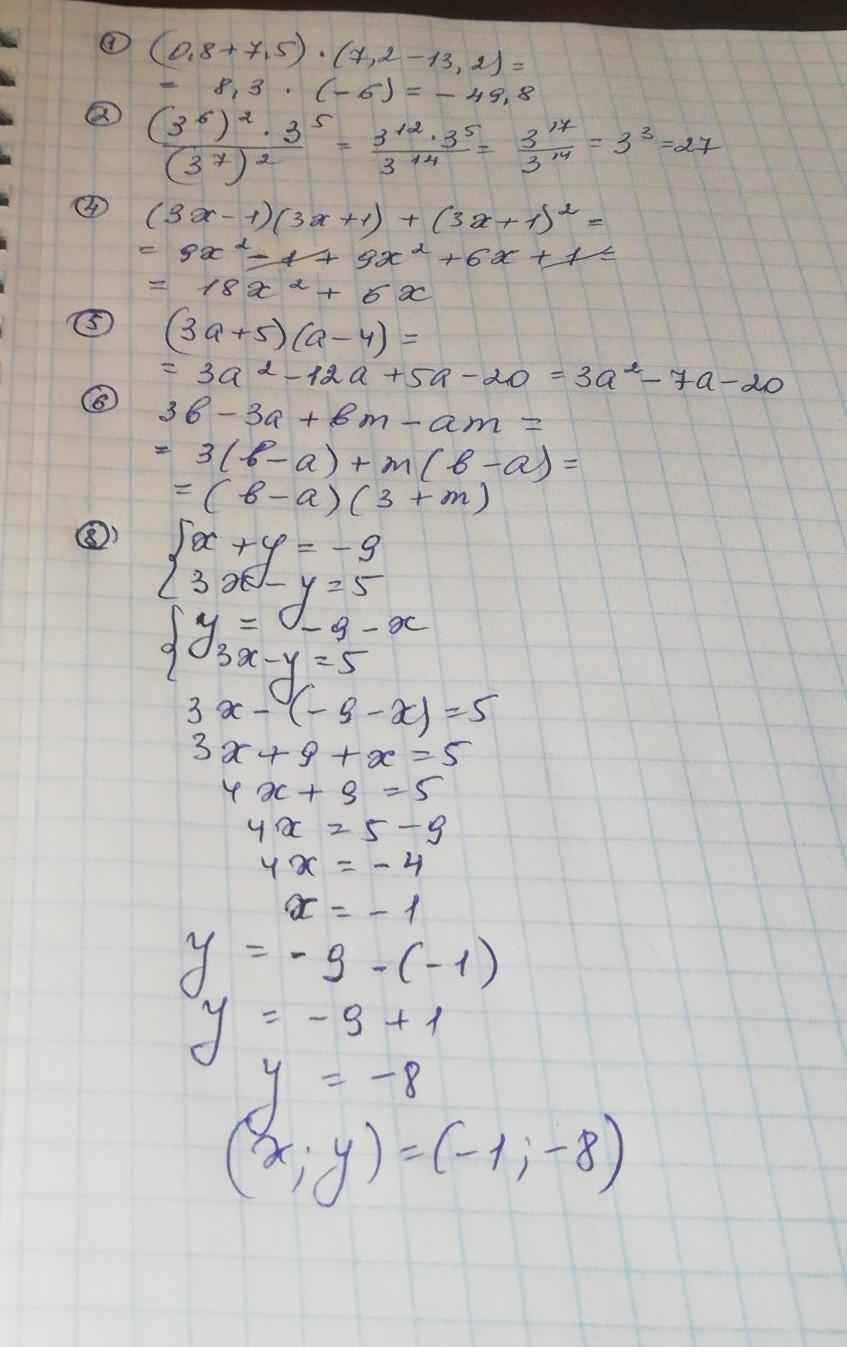 ① (0,8+7,5)·(7,2-13,2)=
= 8,3 · (-6) = -49,8
② (3⁶)²·3⁵/(3⁷)² = 3¹²·3⁵/3¹⁴ = 3¹⁷/3¹⁴ = 3³ = 27
④ (3x-1)(3x+1) + (3x+1)² =
= 9x² - 1 + 9x² + 6x + 1 =
= 18x² + 6x
⑤ (3a+5)(a-4) =
= 3a² - 12a + 5a - 20 = 3a² - 7a - 20
⑥ 3в - 3а + вm - аm =
= 3(в-а) + m(в-а) =
= (в-а)(3+m)
⑧ {x + y = -9
{3x - y = 5
{y = -9 - x
{3x - y = 5
3x - (-9 - x) = 5
3x + 9 + x = 5
4x + 9 = 5
4x = 5 - 9
4x = -4
x = -1
y = -9 - (-1)
y = -9 + 1
y = -8
(x; y) = (-1; -8)